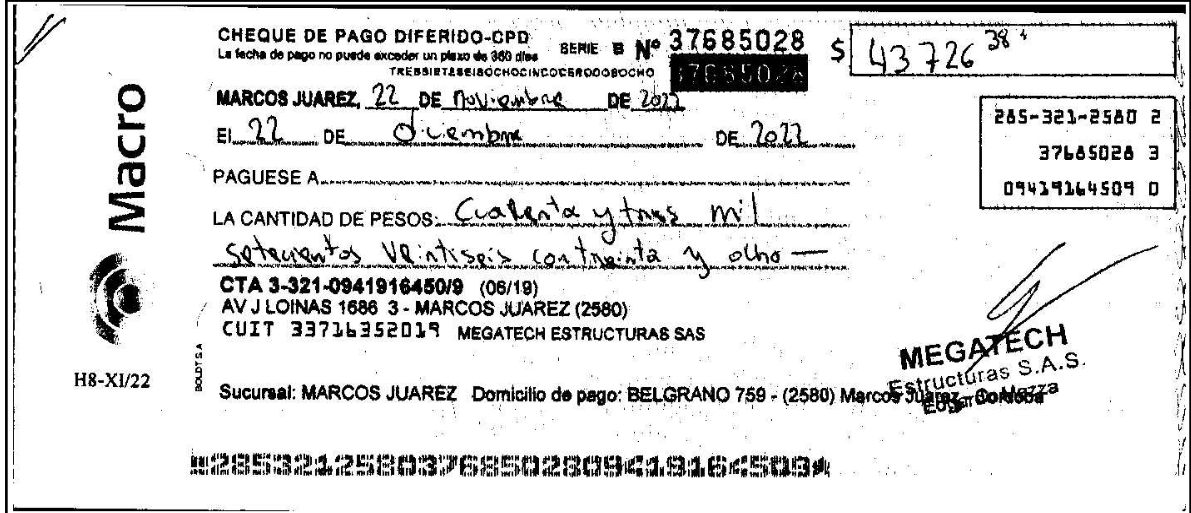 CHEQUE DE PAGO DIFERIDO-CPD
La fecha de pago no puede exceder un plazo de 360 días
SERIE B Nº 37685028
$ 43726 38
TRESSIETESEISOCHOCINCOCERODOSOCHO
37685028
MARCOS JUAREZ, 22 DE Noviembre DE 2022
El 22 DE diciembre DE 2022
285-321-2580 2
37685028 3
09419164509 0
PAGUESE A
LA CANTIDAD DE PESOS: Cuarenta y tres mil
setecientos Veintiseis con treinta y ocho —
CTA 3-321-0941916450/9 (06/19)
AV J LOINAS 1686 3 - MARCOS JUAREZ (2580)
CUIT 33716352019 MEGATECH ESTRUCTURAS SAS
Macro
H8-XI/22
BOLDT S.A
MEGATECH
Estructuras S.A.S.
Mazza
Sucursal: MARCOS JUAREZ Domicilio de pago: BELGRANO 759 - (2580) Marcos Juarez - Cordoba
28532125803768502809419164509